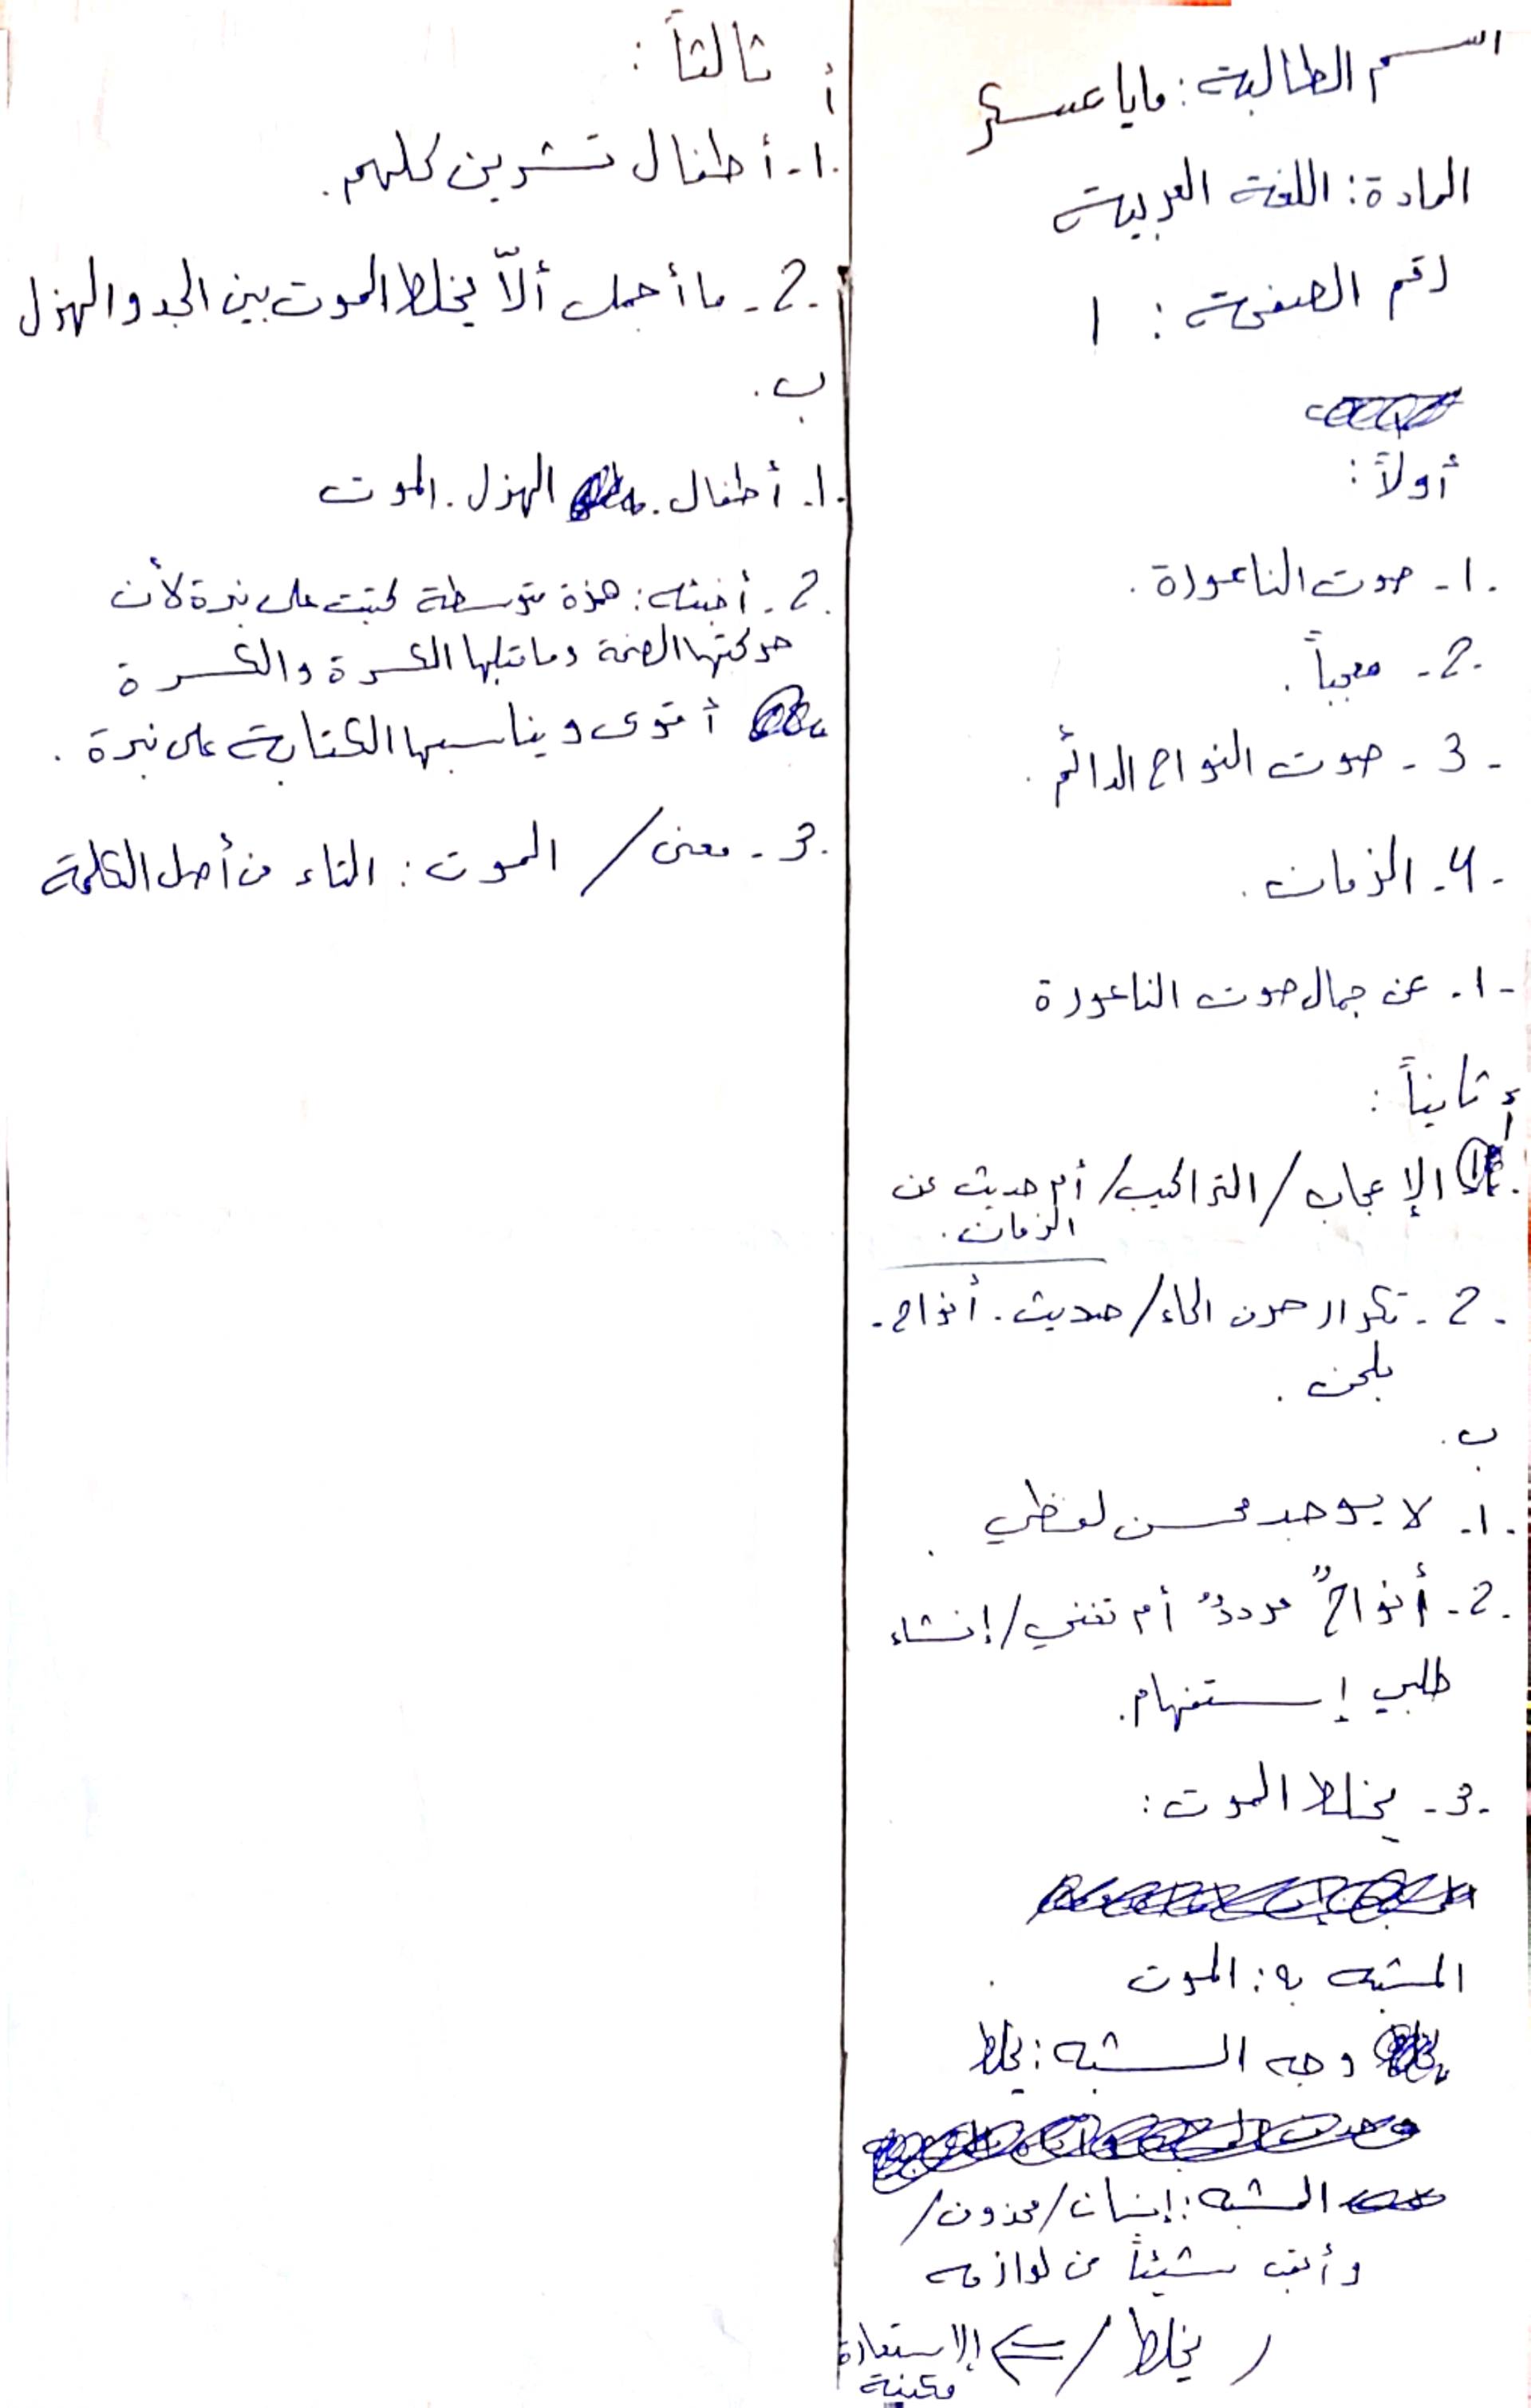 اسم الطالبة: مايا عسكر
المادة: اللغة العربية
رقم الصفحة: 1
أولاً:
1- صوت الناعورة.
2- معجباً.
3- صوت النواح الدائم.
4- الزمان.
1- عن جمال صوت الناعورة
ثانياً:
أ
1 الإعجاب / التراكيب / أم حديث عن
الزمان.
2- تكرار حرف الحاء / حديث. أنواح.
بلحن.
ب.
1- لا يوجد محسن لفظي.
2- أنواحٌ مرددٌ أم تغني / إنشاء
طلبي إستفهام.
3- يخلط الموت:
المشبه به: الموت
وجه الشبه: يخلط
المشبه: إنسان / محذوف /
وأبقى شيئاً من لوازمه
/ يخلط / <= إلاستعارة
مكنية
ثالثاً:
أ
1- أطفال تشرين كلهم.
2- ما أجمل ألاّ يخلط الموت بين الجد والهزل
ب.
1- أطفال. الهزل. الموت
2- أخبئه: همزة متوسطة كتبت على نبرة لأن
حركتها الضمة وما قبلها الكسرة والكسرة
أقوى ويناسبها الكتابة على نبرة.
3- معنى / الموت: التاء من أصل الكلمة